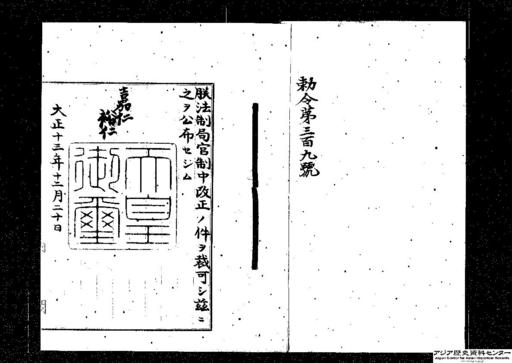 勅令第三百九號
朕法制局官制中改正ノ件ヲ裁可シ茲ニ
之ヲ公布セシム
嘉仁
裕仁
天皇
御璽
大正十三年十二月二十日
アジア歴史資料センター
Japan Center for Asian Historical Records